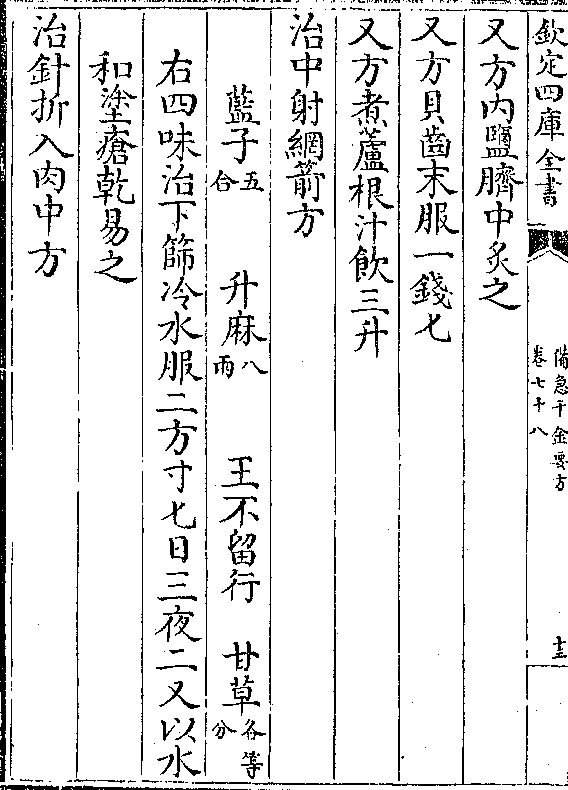 欽定四庫全書
備急千金要方
卷七十八
十三
又方内鹽臍中炙之
又方貝齒末服一錢匕
又方煮蘆根汁飲三升
治中射網箭方
藍子五合 升麻八兩 王不留行 甘草各等分
右四味治下篩冷水服二方寸匕日三夜二又以水
和塗瘡乾易之
治針折入肉中方